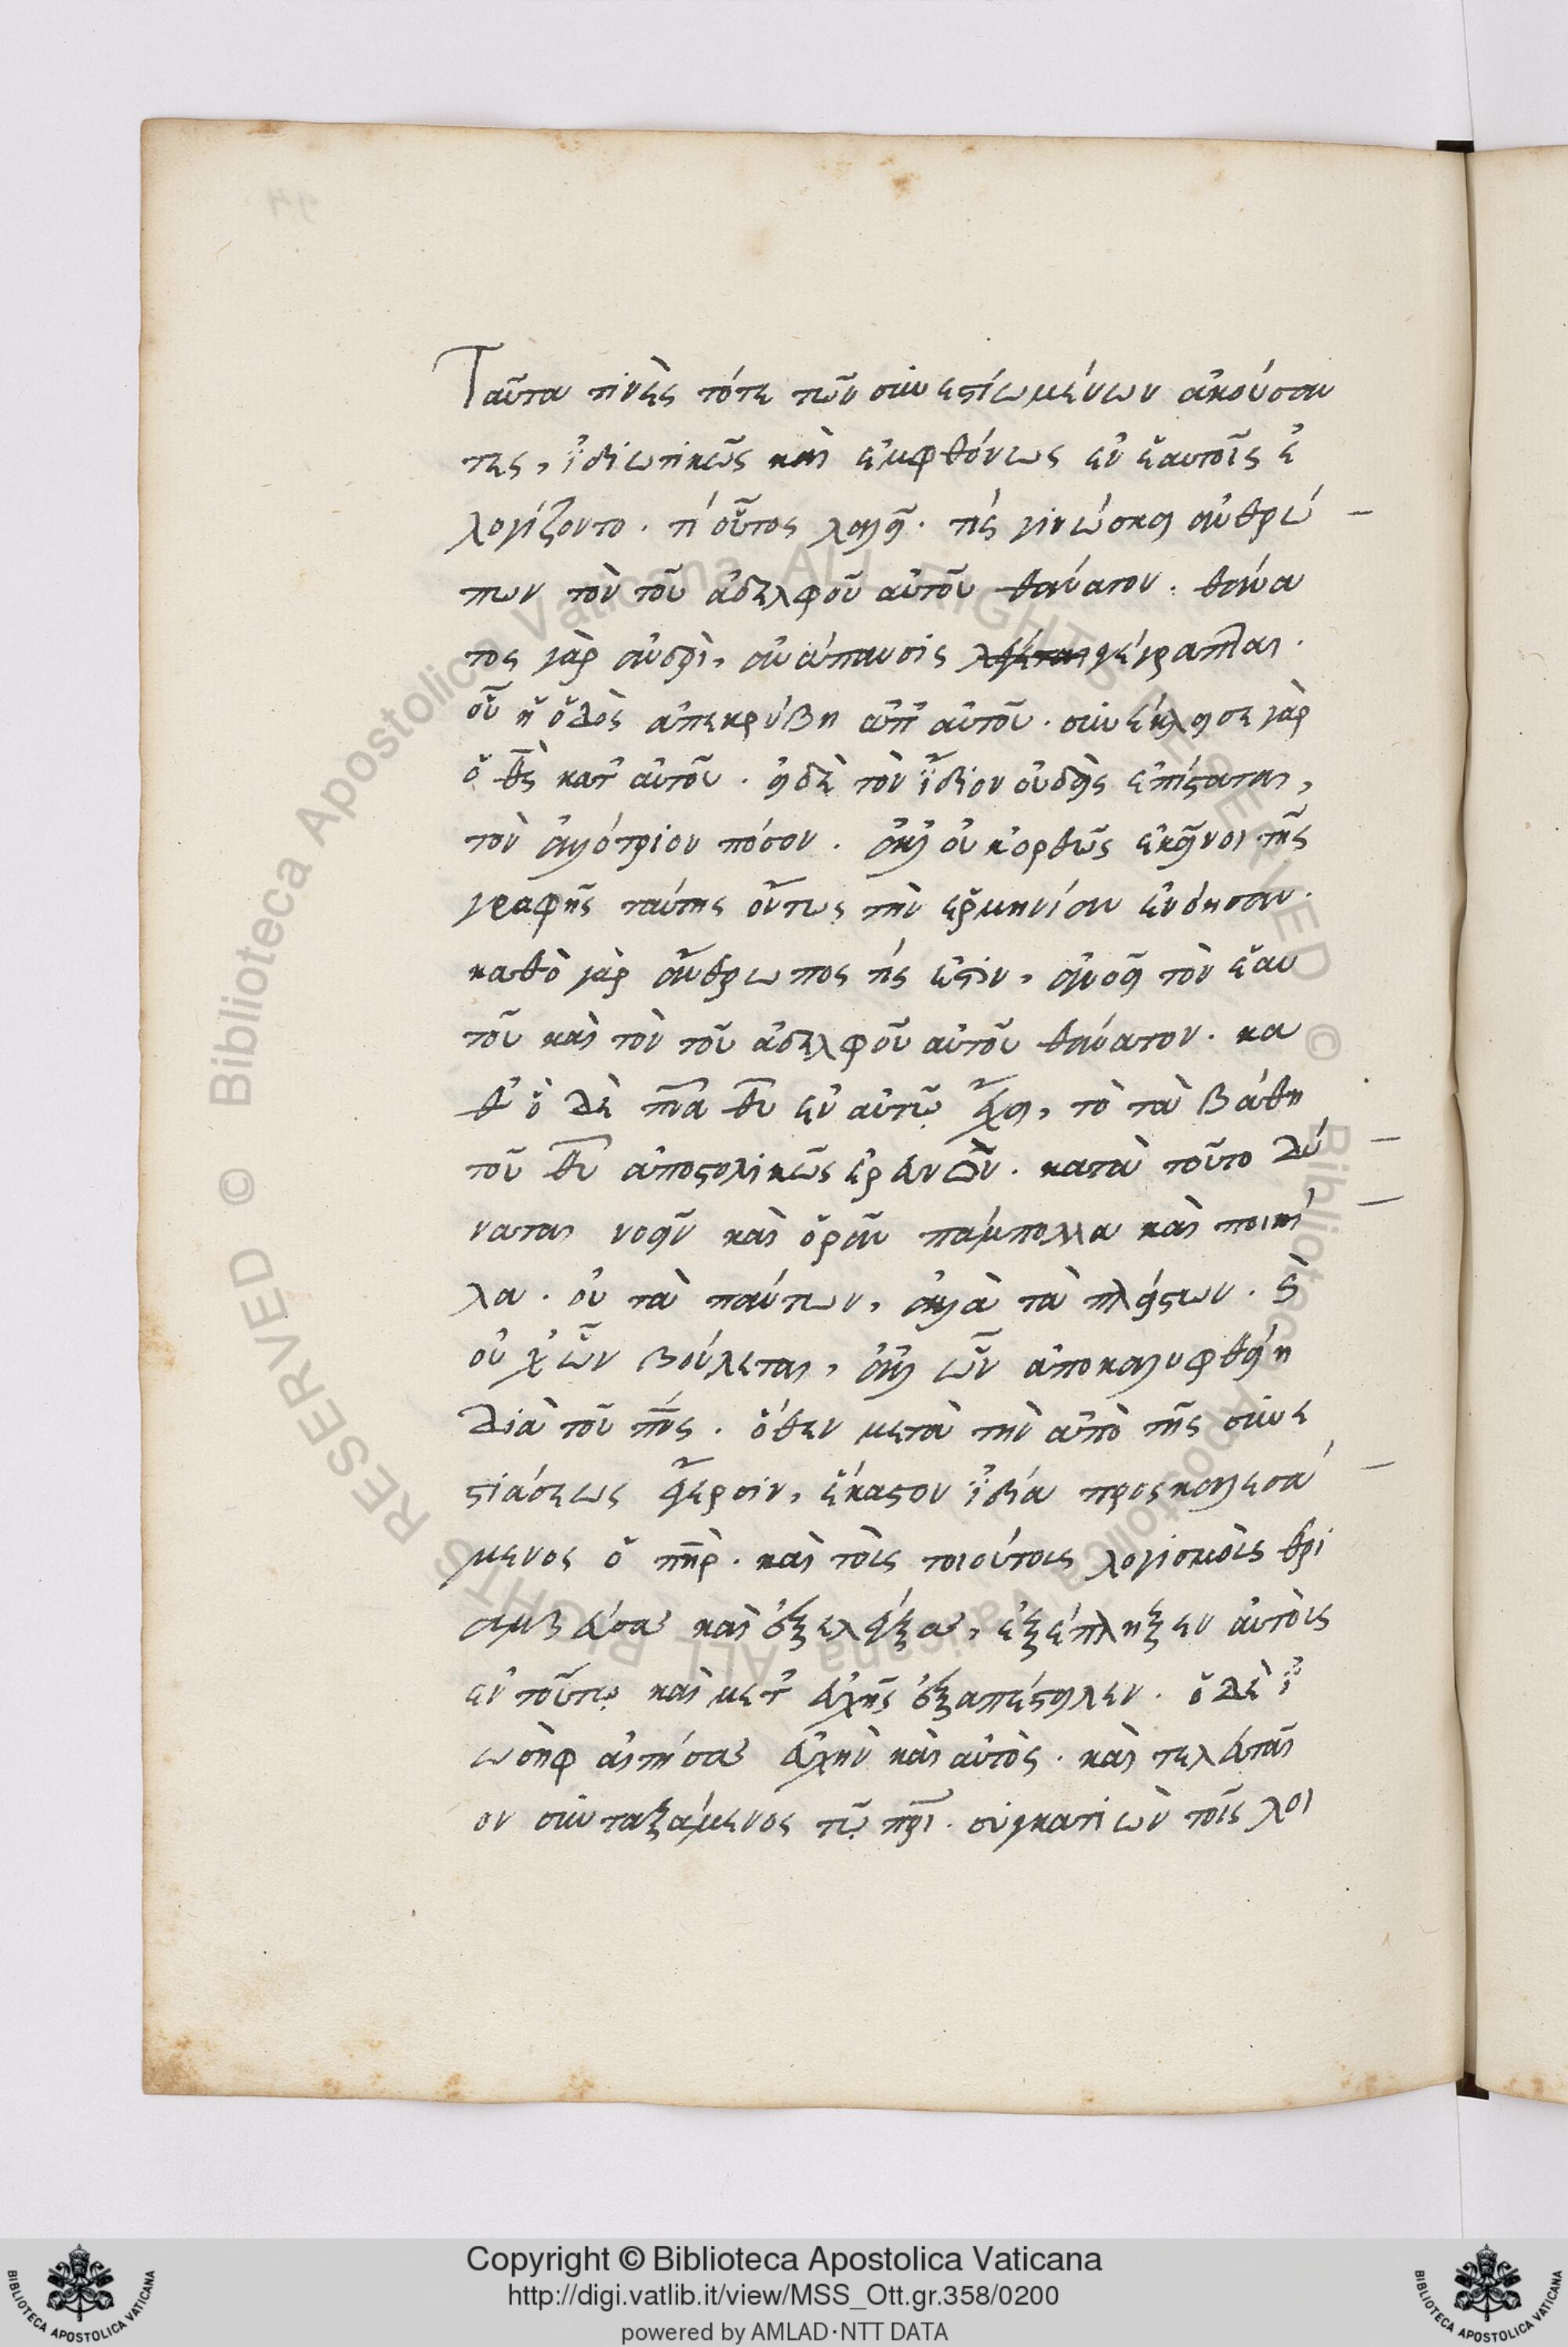 Ταῦτα τινὲς τότε τῶν συνεστιωμένων ἀκούσαν
τες, ἰδιωτικῶς καὶ ἐμφθόνως ἐν ἑαυτοῖς ἐ
λογίζοντο. τί οὗτος λαλεῖ. τίς γινώσκει ἀνθρώ
πων τὸν τοῦ ἀδελφοῦ αὐτοῦ θάνατον. θάνα
τος γὰρ ἀνδρὶ, ἀνάπαυσις γέγραπται.
οὗ ἡ ὁδὸς ἀπεκρύβη ἀπ' αὐτοῦ. συνέκλεισε γὰρ
ὁ θς κατ' αὐτοῦ. εἰ δὲ τὸν ἴδιον οὐδεὶς ἐπίσταται,
τὸν ἀλλότριον πόσον. ἀλλ' οὐκ ὀρθῶς ἐκεῖνοι τῆς
γραφῆς ταύτης οὕτως τὴν ἑρμηνείαν ἐνόησαν.
καθὸ γὰρ ἄνθρωπος τίς ἐστιν, ἀγνοεῖ τὸν ἑαυ
τοῦ καὶ τὸν τοῦ ἀδελφοῦ αὐτοῦ θάνατον. κα
θ' ὃ δὲ πνα θυ ἐν αὐτῷ ἔχει, τὸ τὰ βάθη
τοῦ θυ ἀποστολικῶς ἐρευνῶν. κατὰ τοῦτο δύ
ναται νοεῖν καὶ ὁρᾶν πάμπολλα καὶ ποικί
λα. οὐ τὰ πάντων, ἀλλὰ τὰ πλείστων. καὶ
οὐχ ὧν βούλεται, ἀλλ' ὧν ἀποκαλυφθείη
διὰ τοῦ πνς. ὅθεν μετὰ τὴν ἀπὸ τῆς συνε
στιάσεως ἔγερσιν, ἕκαστον ἰδία προσκαλεσά
μενος ὁ πηρ. καὶ τοῖς τοιούτοις λογισμοῖς θρι
αμβεύσας καὶ ἐξελέγξας, ἐξέπληξεν αὐτοὺς
ἐν τούτῳ καὶ μετ' εὐχῆς ἐξαπέστειλεν. ὁ δὲ ἰ
ωσὴφ αἰτήσας εὐχὴν καὶ αὐτὸς. καὶ τελευταῖ
ον συνταξάμενος τῷ πρι. συγκατιὼν τοῖς λοι
Copyright © Biblioteca Apostolica Vaticana
http://digi.vatlib.it/view/MSS_Ott.gr.358/0200
powered by AMLAD·NTT DATA